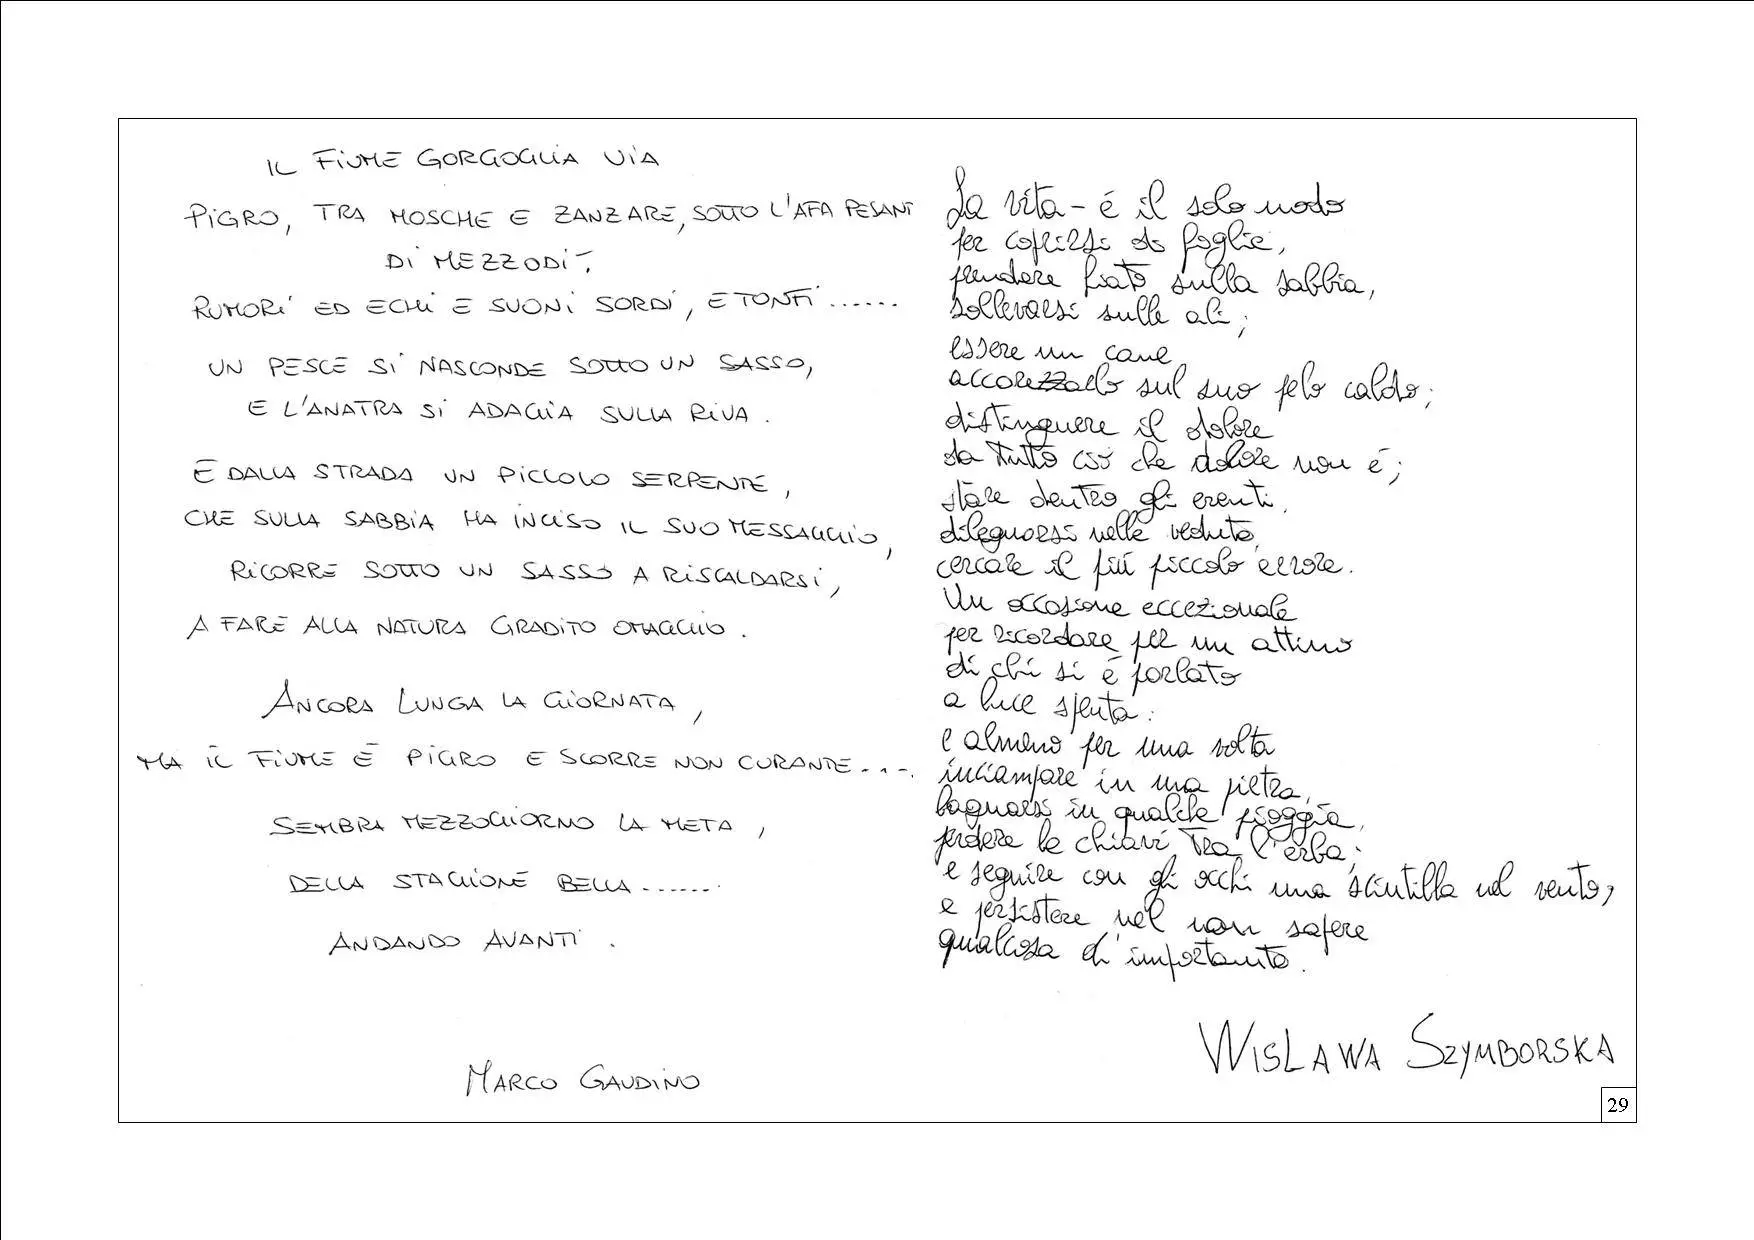 IL FIUME GORGOGLIA VIA
PIGRO, TRA MOSCHE E ZANZARE, SOTTO L'AFA PESANT
DI MEZZODI'.
RUMORI ED ECHI E SUONI SORDI, E TONFI.......
UN PESCE SI NASCONDE SOTTO UN SASSO,
E L'ANATRA SI ADAGIA SULLA RIVA.
E DALLA STRADA UN PICCOLO SERPENTE,
CHE SULLA SABBIA HA INCISO IL SUO MESSAGGIO,
RICORRE SOTTO UN SASSO A RISCALDARSI,
A FARE ALLA NATURA GRADITO OMAGGIO.
ANCORA LUNGA LA GIORNATA,
MA IL FIUME È PIGRO E SCORRE NON CURANTE....
SEMBRA MEZZOGIORNO LA META,
DELLA STAGIONE BELLA.......
ANDANDO AVANTI.
MARCO GAUDINO
La vita - é il solo modo
per coprirsi di foglie,
prendere fiato sulla sabbia,
sollevarsi sulle ali;
essere un cane
accarezzarlo sul suo pelo caldo;
distinguere il dolore
da tutto ciò che dolore non é;
stare dentro gli eventi,
dileguarsi nelle vedute,
cercare il più piccolo errore.
Un occasione eccezionale
per ricordare per un attimo
di chi si é parlato
a luce spenta:
e almeno per una volta
inciampare in una pietra,
bagnarsi in qualche pioggia,
perdere le chiavi tra l'erba;
e seguire con gli occhi una scintilla nel vento;
e persistere nel non sapere
qualcosa d'importante.
WISLAWA SZYMBORSKA
29